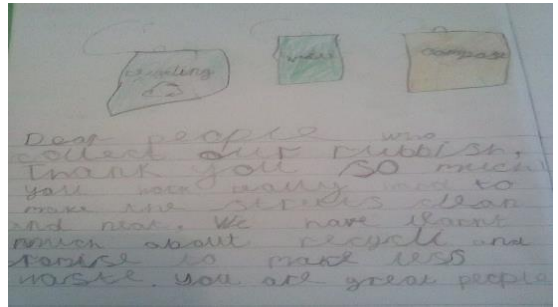 recycling waste compost
Dear people who
collect our rubbish.
Thank you so much
you work really hard to
make the streets clean
and neat. We have learnt
much about recycle and
promise to make less
waste. you are great people